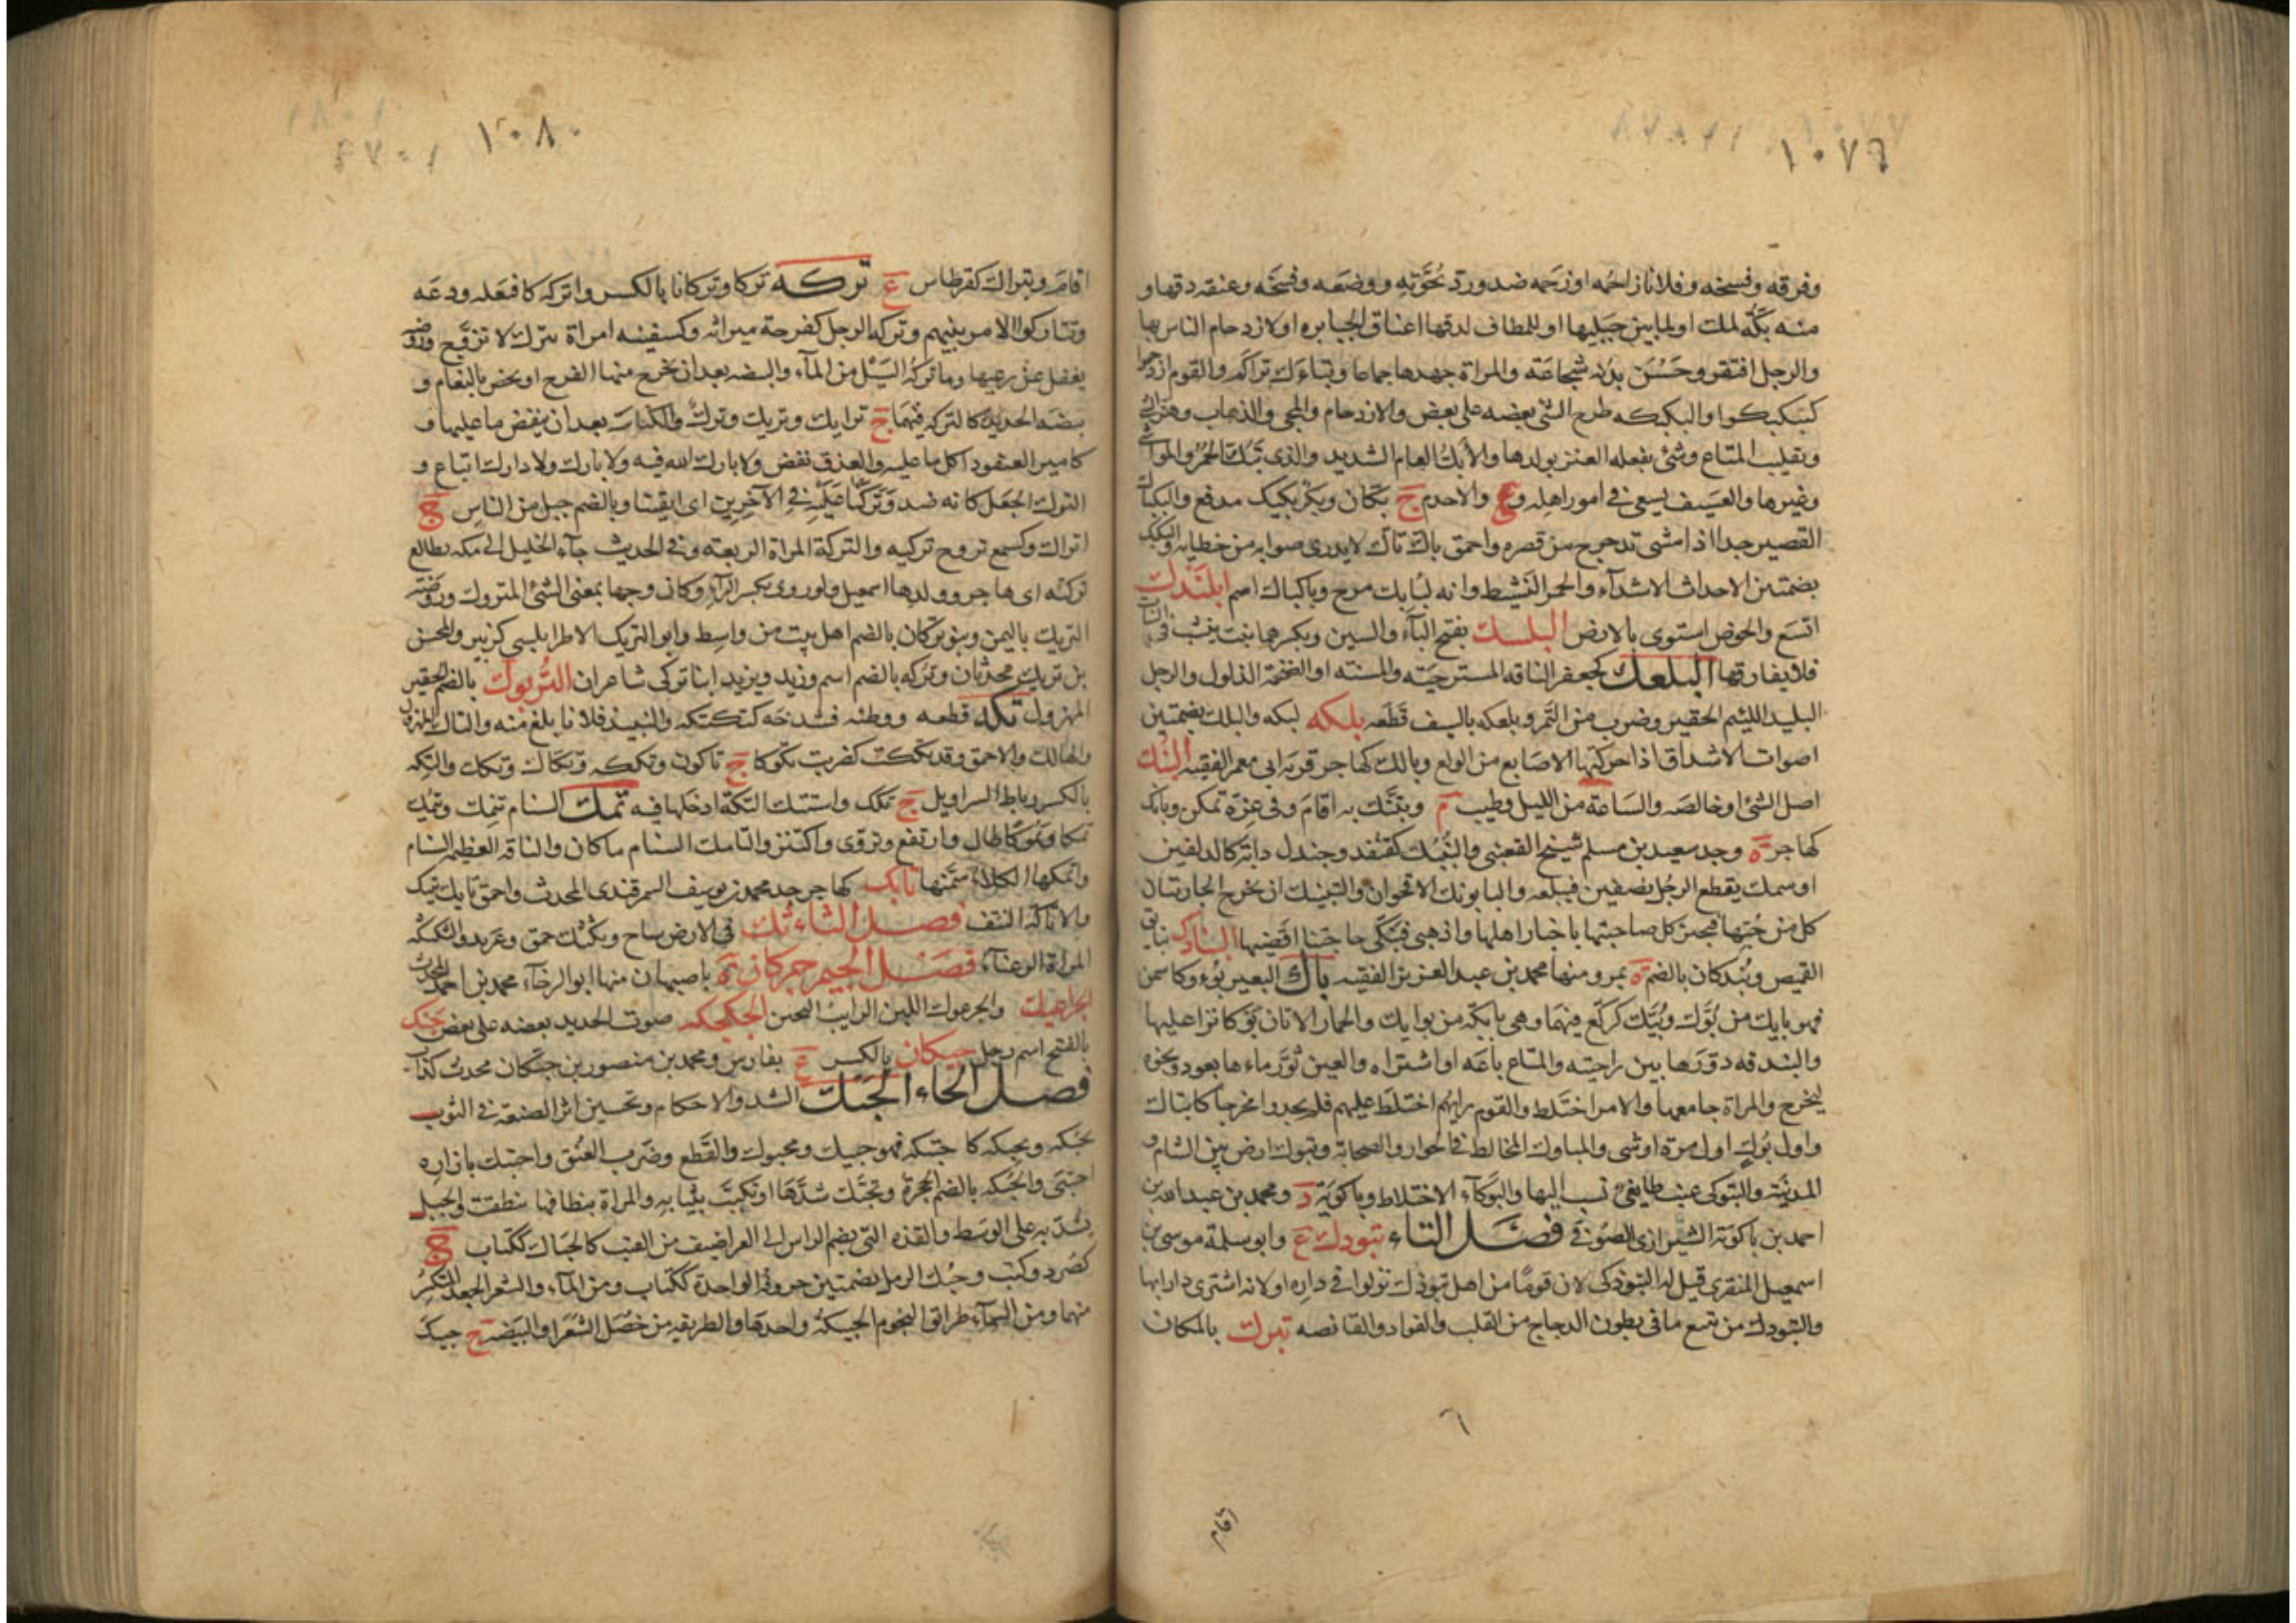 ١٠٧٩
وفرقه وفسخه وفلانا زاحمه او زحمه ضد ورد نخوته ووضعه وفسخه وعنقه دقها و
منه بكة لمكة او لما بين جبليها او للمطاف لدقها اعناق الجبابره او لازدحام الناس بها
والرجل افتقر وحسن بدنه شجاعة والمراة جهدها جماعا وتباك تراكم والقوم ازدحموا
كتبكبكوا والبكبكه طرح الشئ بعضه على بعض والازدحام والمجي والذهاب وهز الشئ
وتقليب المتاع وشئ تفعله العنز بولدها والابك العام الشديد والذى يبك الحمر والمواشى
وغيرها والعسيف يسعى فى امور اهله و ع والاجذم ج بكان وبكر بكبك مدفع والبكباك
القصير جدا اذا مشى تدحرج من قصره واحمق باك تاك لا يدرى صوابه من خطائه والبكك
بضمتين الاحداث الاشداء والحمر النشيطة وانه لبابك مرح وبا كباك اسم ابلندك
اتسع والحوض استوى بالارض البلسك بفتح الباء والسين وبكسرهما نبت ينشب فى الثياب
فلا يفارقها البلعك كجعفر الناقه المسترخية والمسنه او الضخمة الذلول والرجل
البليد اللئيم الحقير وضرب من التمر وبلعكه بالسيف قطعه بلكه لبكه والبلك بضمتين
اصوات الاشداق اذا حركتها الاصابع من الولع وبالك كهاجر قرية ابى معمر الفقيه البنك
اصل الشئ او خالصه والساعة من الليل وطيب م وتبنك به اقام وفى عزه تمكن وبانك
كهاجر ة وجد سعيد بن مسلم شيخ القعنبى والبنبك كقنفد وجندل دابة كالدلفين
او سمك يقطع الرجل نصفين فيبلعه والبابونك الاقحوان والتبنيك ان تخرج الجاريتان
كل من حيها فتخبر كل صاحبتها باخبار اهلها واذهبى فبنكى حاجتنا اقضيها البنادك بنايق
القميص وبندكان بالضم ة بمرو منها محمد بن عبد العزيز الفقيه باك البعير بوء وكا سمن
فهو بايك من بوك وبيك كركع فيهما وهى بايكة من بوايك والحمار الاتان بوكا نزا عليها
والبندقه دورها بين راحتيه والمتاع باعه او اشتراه والعين ثور ماءها بعود ونحوه
ليخرج والمراة جامعها والامر اختلط والقوم رايهم اختلط عليهم فلم يجدوا مخرجا كانباك
واول بوك اول مرة او شئ والمباوك المخالط فى الجوار والصحابة وتبوك ارض بين الشام و
المدينة والتبوكى عنب طايفى نسب اليها والبوكاء الاختلاط وباكوية د ومحمد بن عبد الله بن
احمد بن باكوية الشيرازى الصوفى فصل التاء تبوذك ع وابو سلمة موسى بن
اسمعيل المنقرى قيل له التبوذكى لان قوما من اهل تبوذك نزلوا فى داره او لانه اشترى دارا بها
والتبوذك من تبيع ما فى بطون الدجاج من القلب والفواد والقانصه تبرك بالمكان
٦
اقام
١٠٨٠
اقام وتبراك كقرطاس ع تركه تركا وتركانا بالكسر واتركه كافتعله ودعه
وتتاركوا الامر بينهم وتركه الرجل كفرحة ميراثه وكسفينه امراة تترك لا تزوج وروضه
يغفل عن رعيها وما تركه السيل من الماء والبيضه بعد ان يخرج منها الفرخ او يخص بالنعام و
بيضه الحديد كالتركه فيهما ج ترايك وتريك وترك والكباسه بعد ان ينفض ما عليها و
كامير العنقود اكل ما عليه والعذق نفض ولا بارك الله فيه ولا تارك ولا دارك اتباع و
الترك الجعل كانه ضد وتركنا عليه فى الآخرين اى ابقينا وبالضم جيل من الناس ج
اتراك وكسمع تزوج تريكه والتركة المراة الربعة وفى الحديث جاء الخليل الى مكه يطالع
تركته اى هاجر وولدها اسمعيل ولو روى بكسر الراء وكان وجها بمعنى الشئ المتروك وروضة
التريك باليمن وبنو تركان بالضم اهل بيت من واسط وابو التريك الاطرابلسى كزبير والمحسن
بن تريك محدثان وتركه بالضم اسم وزيد ويزيد ابنا تركى شاعران التربوك بالضم الحقير
المهزول تكه قطعه ووطئه فشدخه كتكتكه والنبيذ فلانا بلغ منه والتاك المهزول
والهالك والاحمق وقد تككت كضربت تكوكا ج تاكون وتككه وتكاك وتكك والتكه
بالكسر رباط السراويل ج تكك واستتك التكة ادخلها فيه تمك السنام تتمك وتتمك
تمكا وتموكا طال وارتفع وتروى واكتنز والتامك السنام ما كان والناقه العظيم السنام
واتمكها الكلا سمنها تابك كهاجر جد محمد بن يوسف السمرقندى المحدث واحمق تايك تيك
والاتاكة النتف فصل الثاء ثك فى الارض ساح وبكثك حمق وعربد والثكثكه
المراة الرعناء فصل الجيم جبركان ة باصبهان منها ابو الرجاء محمد بن احمد المحدث
الجراعيك والجرعوك اللبن الرايب الثخين الجكجكه صوت الحديد بعضه على بعض جنك
بالفتح اسم رجل جيكان بالكسر ع بفارس ومحمد بن منصور بن جيكان محدث كذاب
فصل الحاء الحبك الشد والاحكام وتحسين اثر الصنعة فى الثوب
يحبكه ويحبكه كاحتبكه فهو حبيك ومحبوك والقطع وضرب العنق واحتبك بازاره
احتبى والحبكه بالضم الحجزة وتحبك شدها او تلبب بثيابه والمراة بنطاقها تنطقت والحبل
يشد به على الوسط والقذه التى يضم الراس الى الغراضيف من القتب كالحباك ككتاب ج
كصرد وكتب وحبك الرمل بضمتين حروفه الواحدة ككتاب ومن الماء والشعر الجعد المتكسر
منهما ومن السماء طرائق النجوم الحبيكه واحدها والطريقه من خصل الشعر او البيضه ج حبيك